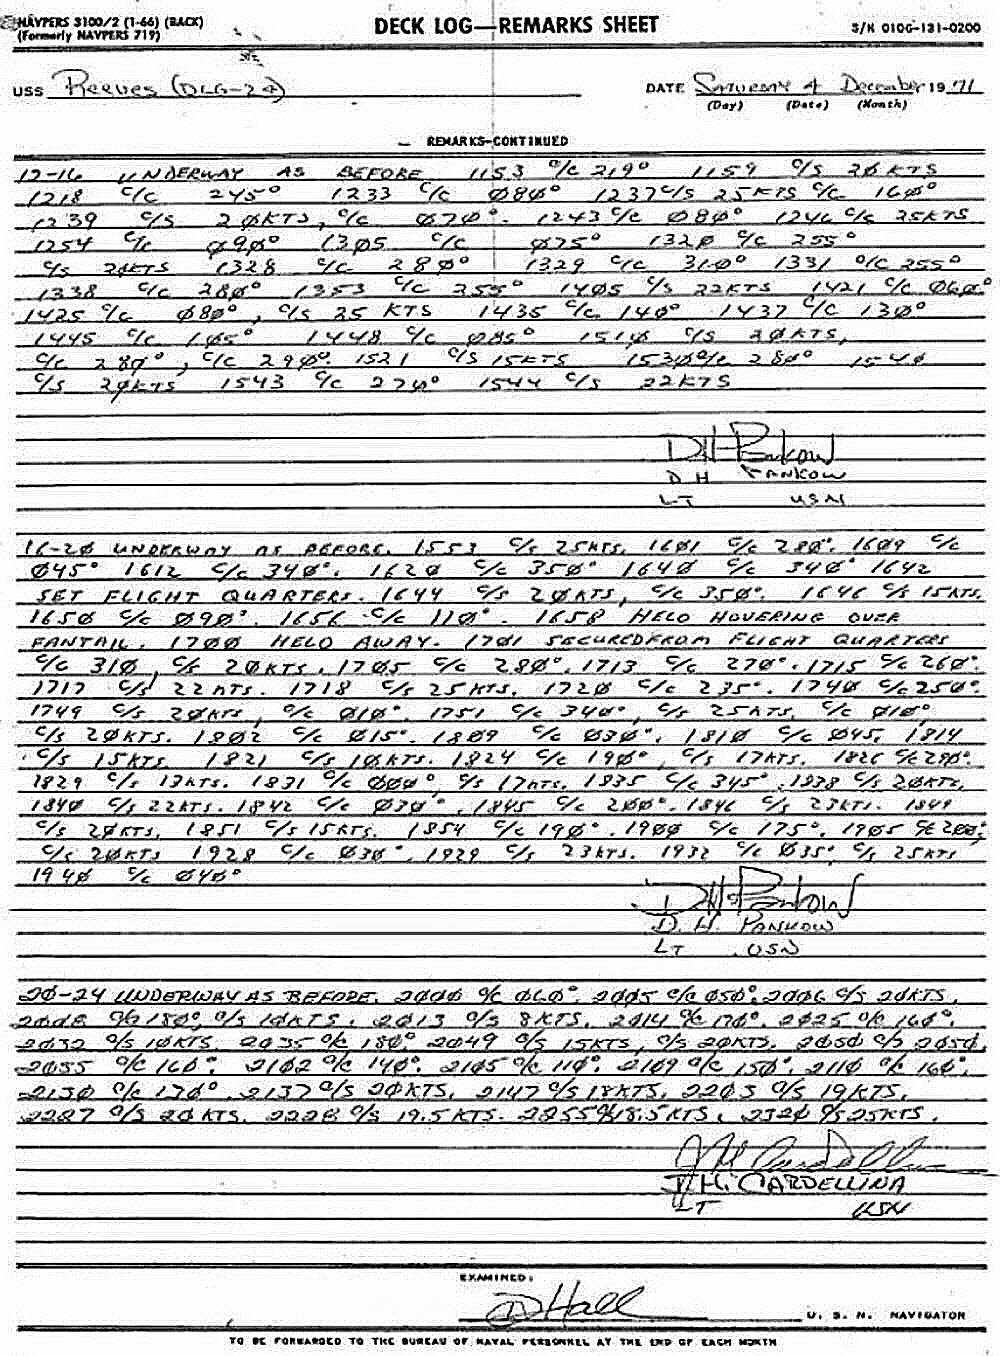 NAVPERS 3100/2 (1-66) (BACK)
(Formerly NAVPERS 719)
DECK LOG—REMARKS SHEET
S/N 0106-131-0200
USS Reeves (DLG-24)
DATE Saturday 4 December 1971
(Day) (Date) (Month)
REMARKS-CONTINUED
12-16 UNDERWAY AS BEFORE 1153 c/c 219° 1159 c/s 20 KTS
1218 c/c 245° 1233 c/c 080° 1237 c/s 25 KTS c/c 160°
1239 c/s 20KTS, c/c 070°. 1243 c/c 080° 1246 c/c 25KTS
1254 c/c 090° 1305 c/c 075° 1320 c/c 255°
c/s 20KTS 1328 c/c 280° 1329 c/c 310° 1331 c/c 255°
1338 c/c 280° 1353 c/c 255° 1405 c/s 22KTS 1421 c/c 060°
1425 c/c 080°, c/s 25 KTS 1435 c/c 140° 1437 c/c 130°
1445 c/c 1448 c/c 085° 1510 c/s 20KTS,
c/c 280°, c/c 290°. 1521 c/s 15KTS 1530 c/c 280° 1540
c/s 20KTS 1543 c/c 270° 1544 c/s 22KTS
DH Pankow
D H PANKOW
LT USN
16-20 UNDERWAY AS BEFORE. 1553 c/s 25KTS. 1601 c/c 280°. 1609 c/c
045° 1612 c/c 340°. 1620 c/c 350° 1640 c/c 340° 1642
SET FLIGHT QUARTERS. 1644 c/s 20KTS, c/c 350°. 1646 c/s 15KTS.
1650 c/c 090°. 1656 c/c 110°. 1658 HELO HOVERING OVER
FANTAIL. 1700 HELO AWAY. 1701 SECURED FROM FLIGHT QUARTERS
c/c 310, c/s 20KTS. 1705 c/c 280°. 1713 c/c 270°. 1715 c/c 260°.
1717 c/s 22KTS. 1718 c/s 25KTS. 1720 c/c 235°. 1740 c/c 250°.
1749 c/s 20KTS, c/c 010°. 1751 c/c 340°, c/s 25KTS. c/c 010°,
c/s 20KTS. 1802 c/c 015°. 1809 c/c 030°. 1810 c/c 045. 1814
c/s 15KTS. 1821 c/s 10KTS. 1824 c/c 190°, c/s 17KTS. 1826 c/c 290°.
1829 c/s 13KTS. 1831 c/c 000°, c/s 17KTS. 1835 c/c 345°. 1838 c/s 20KTS.
1840 c/s 22KTS. 1842 c/c 030°. 1845 c/c 200°. 1846 c/s 23KTS. 1849
c/s 20KTS. 1851 c/s 15KTS. 1854 c/c 190°. 1900 c/c 175°. 1905 c/c 200°,
c/c 20KTS 1928 c/c 030°. 1929 c/s 23KTS. 1932 c/c 035° c/s 25KTS
1940 c/c 040°
DH Pankow
D. H. PANKOW
LT USN
20-24 UNDERWAY AS BEFORE. 2000 c/c 060°. 2005 c/c 050°. 2006 c/s 20KTS.
2008 c/c 180°, c/s 10KTS. 2013 c/s 8KTS. 2014 c/c 170°. 2025 c/c 160°.
2032 c/s 10KTS. 2035 c/c 180°. 2049 c/s 15KTS, c/s 20KTS. 2050 c/s 2050,
2055 c/c 160°. 2102 c/c 140°. 2105 c/c 110°. 2109 c/c 150°. 2110 c/c 160°.
2130 c/c 170°. 2137 c/s 20KTS. 2147 c/s 18KTS. 2203 c/s 19KTS.
2227 c/s 20 KTS. 2228 c/s 19.5 KTS. 2255 c/s 18.5 KTS. 2320 c/s 25KTS.
J H Cardellina
J. H. CARDELLINA
LT USN
EXAMINED:
D Hall
U. S. N. NAVIGATOR
TO BE FORWARDED TO THE BUREAU OF NAVAL PERSONNEL AT THE END OF EACH MONTH